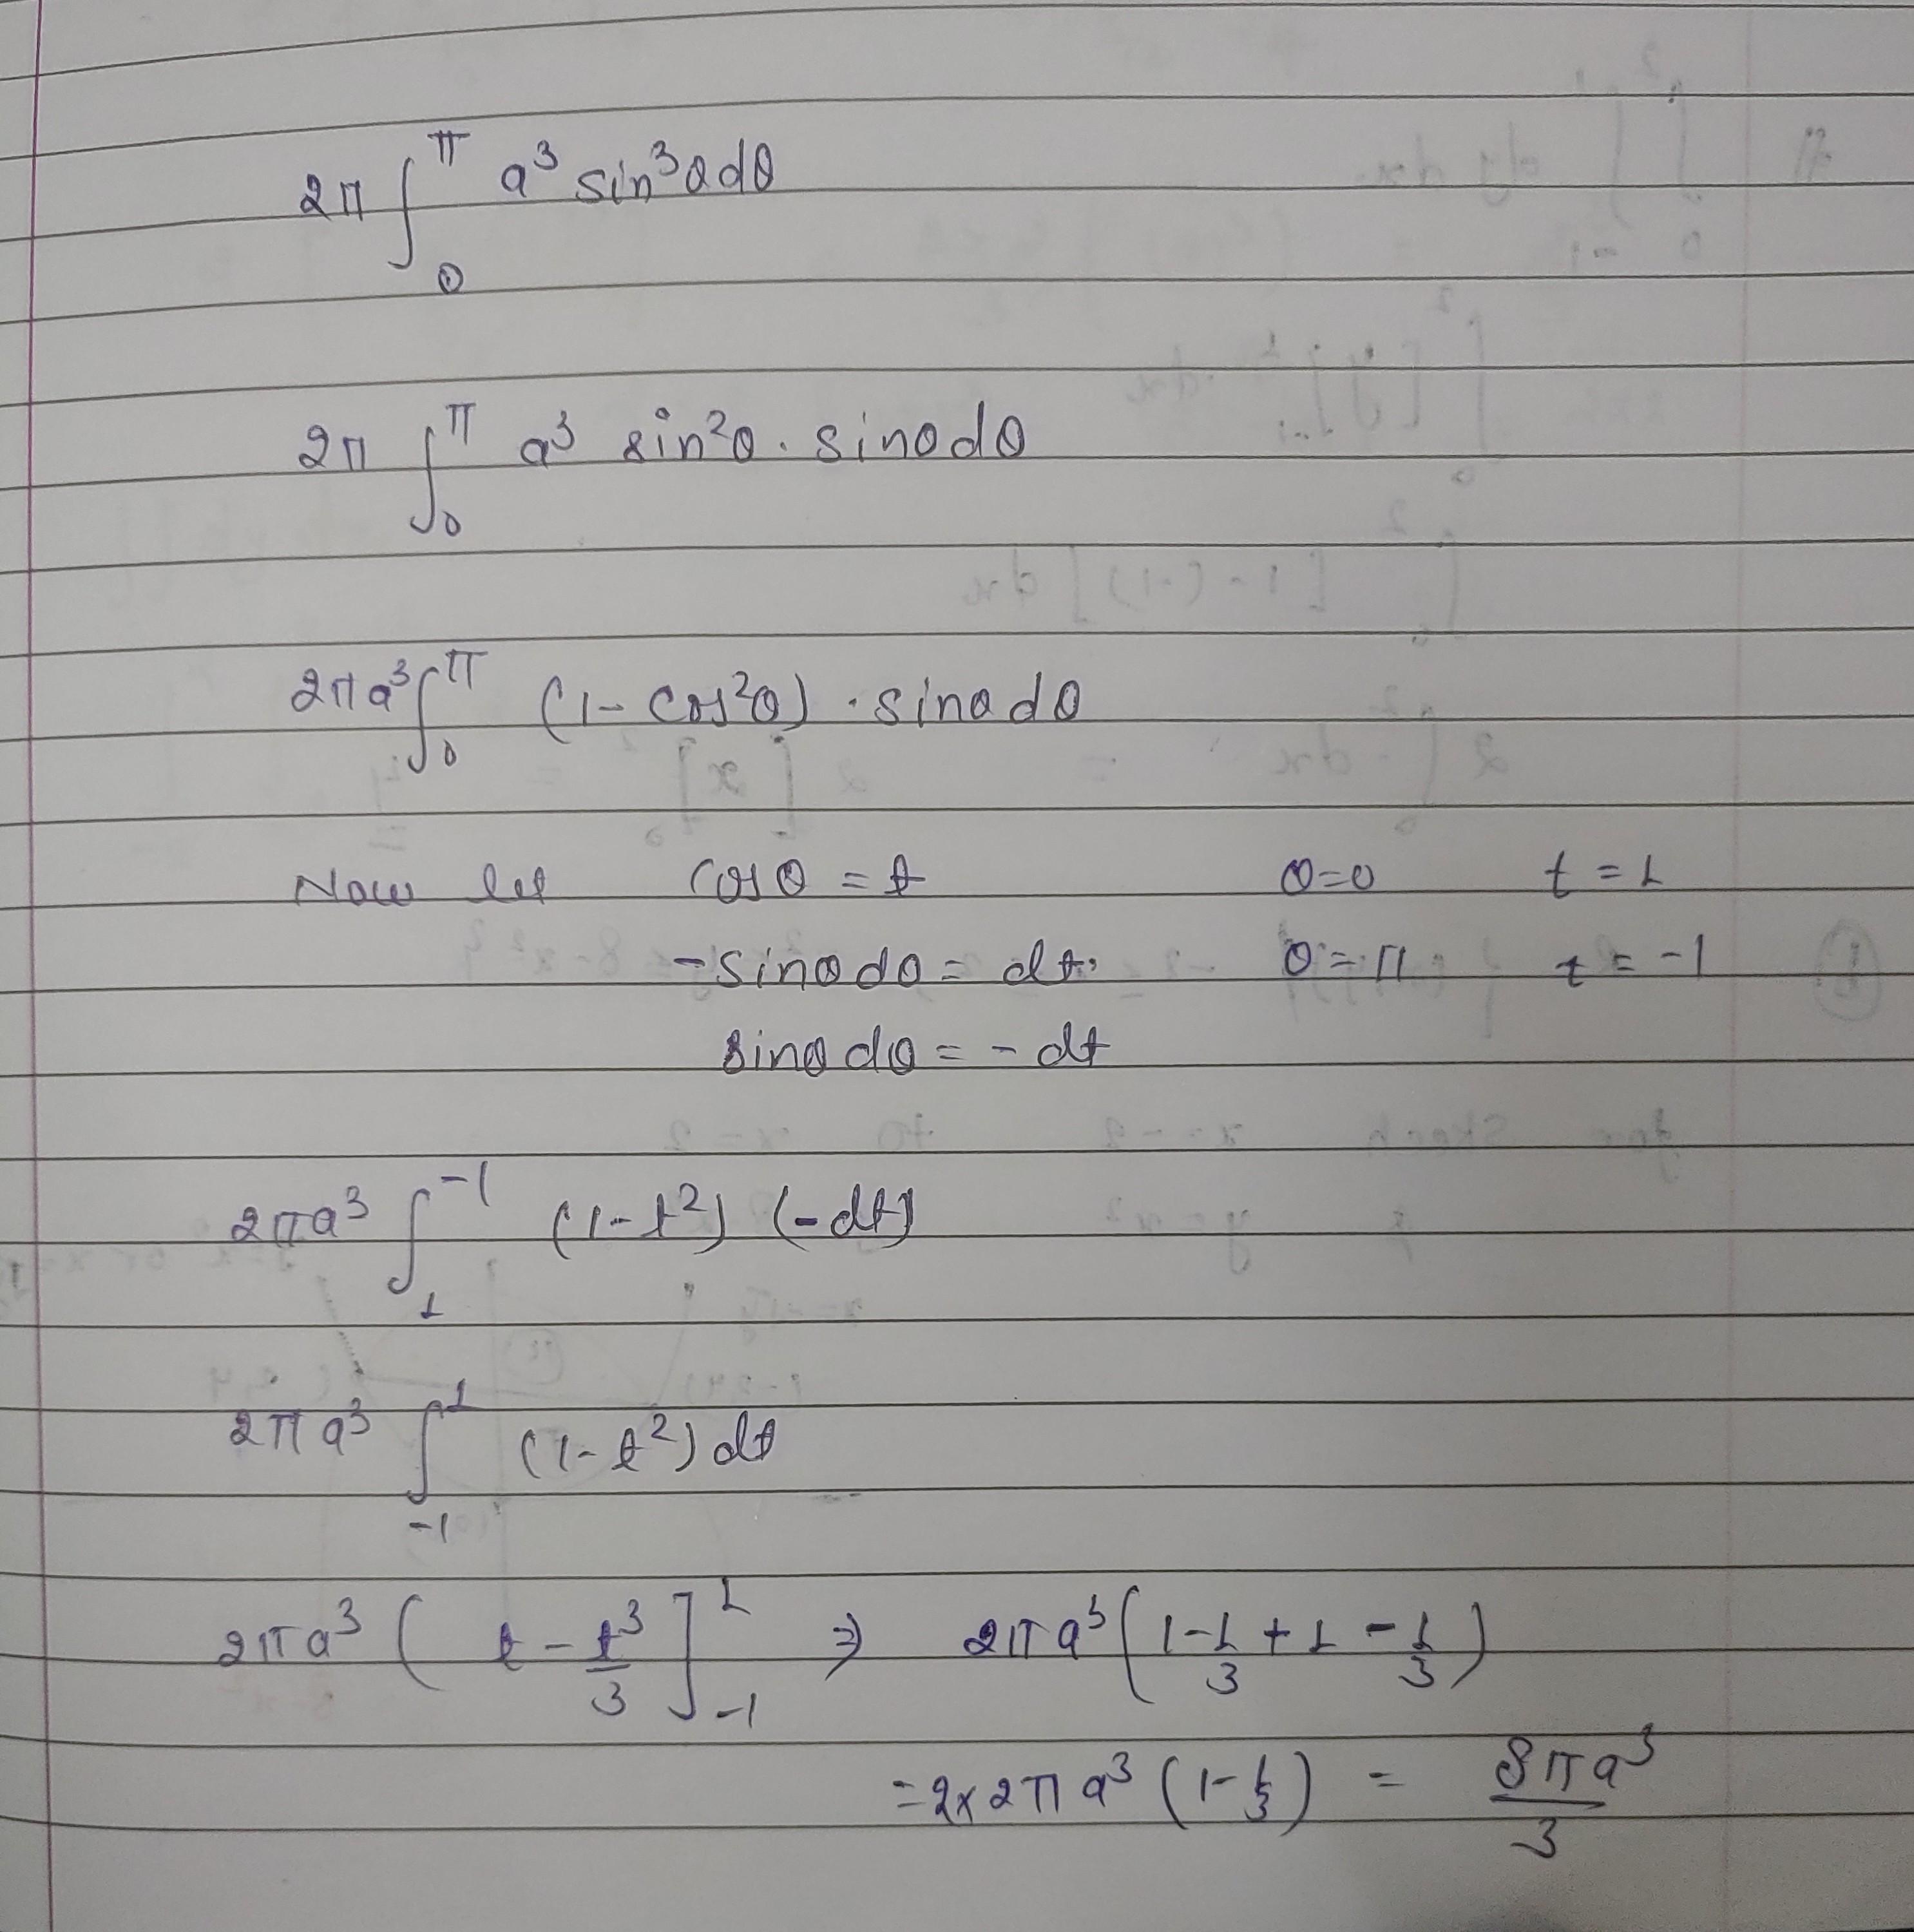 2π ∫₀^π a³ sin³θ dθ
2π ∫₀^π a³ sin²θ · sinθ dθ
2πa³ ∫₀^π (1 - cos²θ) · sinθ dθ
Now let cosθ = t θ=0 t = 1
-sinθ dθ = dt θ = π t = -1
sinθ dθ = - dt
2πa³ ∫₁^-1 (1 - t²) (-dt)
2πa³ ∫₋₁^1 (1 - t²) dt
2πa³ ( t - t³/3 ]₋₁^1 ⇒ 2πa³ ( 1 - 1/3 + 1 - 1/3 )
= 2 x 2πa³ ( 1 - 1/3 ) = 8πa³/3